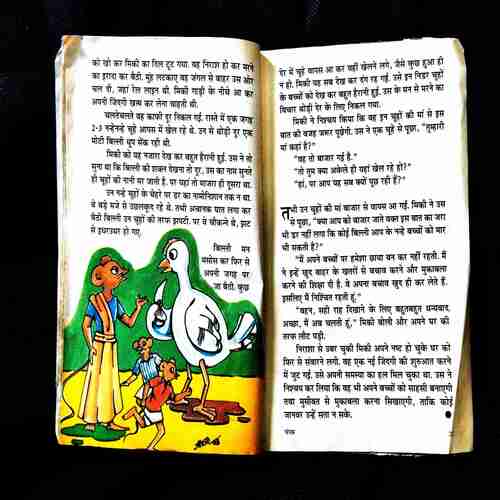 को खो कर मिकी का दिल टूट गया. वह निराश हो कर मरने
का इरादा कर बैठी. मुंह लटकाए वह जंगल से बाहर उस ओर
चल दी, जहां रेल लाइन थी. मिकी गाड़ी के नीचे आ कर
अपनी जिंदगी खत्म कर लेना चाहती थी.
चलतेचलते वह काफी दूर निकल गई. रास्ते में एक जगह
2-3 नन्हेनन्हे चूहे आपस में खेल रहे थे. उन से थोड़ी दूर एक
मोटी बिल्ली धूप सेंक रही थी.
मिकी को यह नजारा देख कर बहुत हैरानी हुई. उस ने तो
सुना था कि बिल्ली को शक्ल देखना तो दूर, उस का नाम सुनते
ही चूहों की नानी मर जाती है. पर यहां तो माजरा ही दूसरा था.
उन नन्हे चूहों के चेहरे पर डर का नामोनिशान तक न था.
वे बड़े मजे से उछलकूद रहे थे. तभी अचानक घात लगा कर
बैठी बिल्ली उन चूहों की तरफ झपटी. पर वे चौकन्ने थे, झट
से इधरउधर हो गए.
बिल्ली मन
मसोस कर फिर से
अपनी जगह पर
जा बैठी. कुछ
देर में चूहे वापस आ कर वहीं खेलने लगे, जैसे कुछ हुआ ही
न हो. मिकी यह सब देख कर दंग रह गई. उसे इन निडर चूहों
के बच्चों को देख कर बहुत हैरानी हुई. उस के मन से मरने का
विचार थोड़ी देर के लिए निकल गया.
मिकी ने निश्चय किया कि वह इन चूहों की मां से इस
बात की वजह जरूर पूछेगी. उस ने एक चूहे से पूछा, "तुम्हारी
मां कहां है?"
"वह तो बाजार गई है."
"तो तुम क्या अकेले ही यहां खेल रहे हो?"
"हां, पर आप यह सब क्यों पूछ रही हैं?"
तभी उन चूहों की मां बाजार से वापस आ गई. मिकी ने उस
से पूछा, "क्या आप को बाजार जाते वक्त इस बात का जरा
भी डर नहीं लगा कि कोई बिल्ली आप के नन्हे बच्चों को मार
भी सकती है?"
"मैं अपने बच्चों पर हमेशा छाया बन कर नहीं रहती. मैं
ने इन्हें खुद बाहर के खतरों से बचाव करने और मुकाबला
करने की शिक्षा दी है. ये अपना बचाव खुद ही कर लेते हैं.
इसलिए मैं निश्चिंत रहती हूं."
"बहन, सही राह दिखाने के लिए बहुतबहुत धन्यवाद.
अच्छा, मैं अब चलती हूं," मिकी बोली और अपने घर की
तरफ लौट पड़ी.
निराशा से उबर चुकी मिकी अपने नष्ट हो चुके घर को
फिर से संवारने लगी. वह एक नई जिंदगी की शुरुआत करने
में जुट गई. उसे अपनी समस्या का हल मिल चुका था. उस ने
निश्चय कर लिया कि वह भी अपने बच्चों को साहसी बनाएगी
तथा मुसीबत से मुकाबला करना सिखाएगी, ताकि कोई
जानवर उन्हें सता न सके.
चंपक